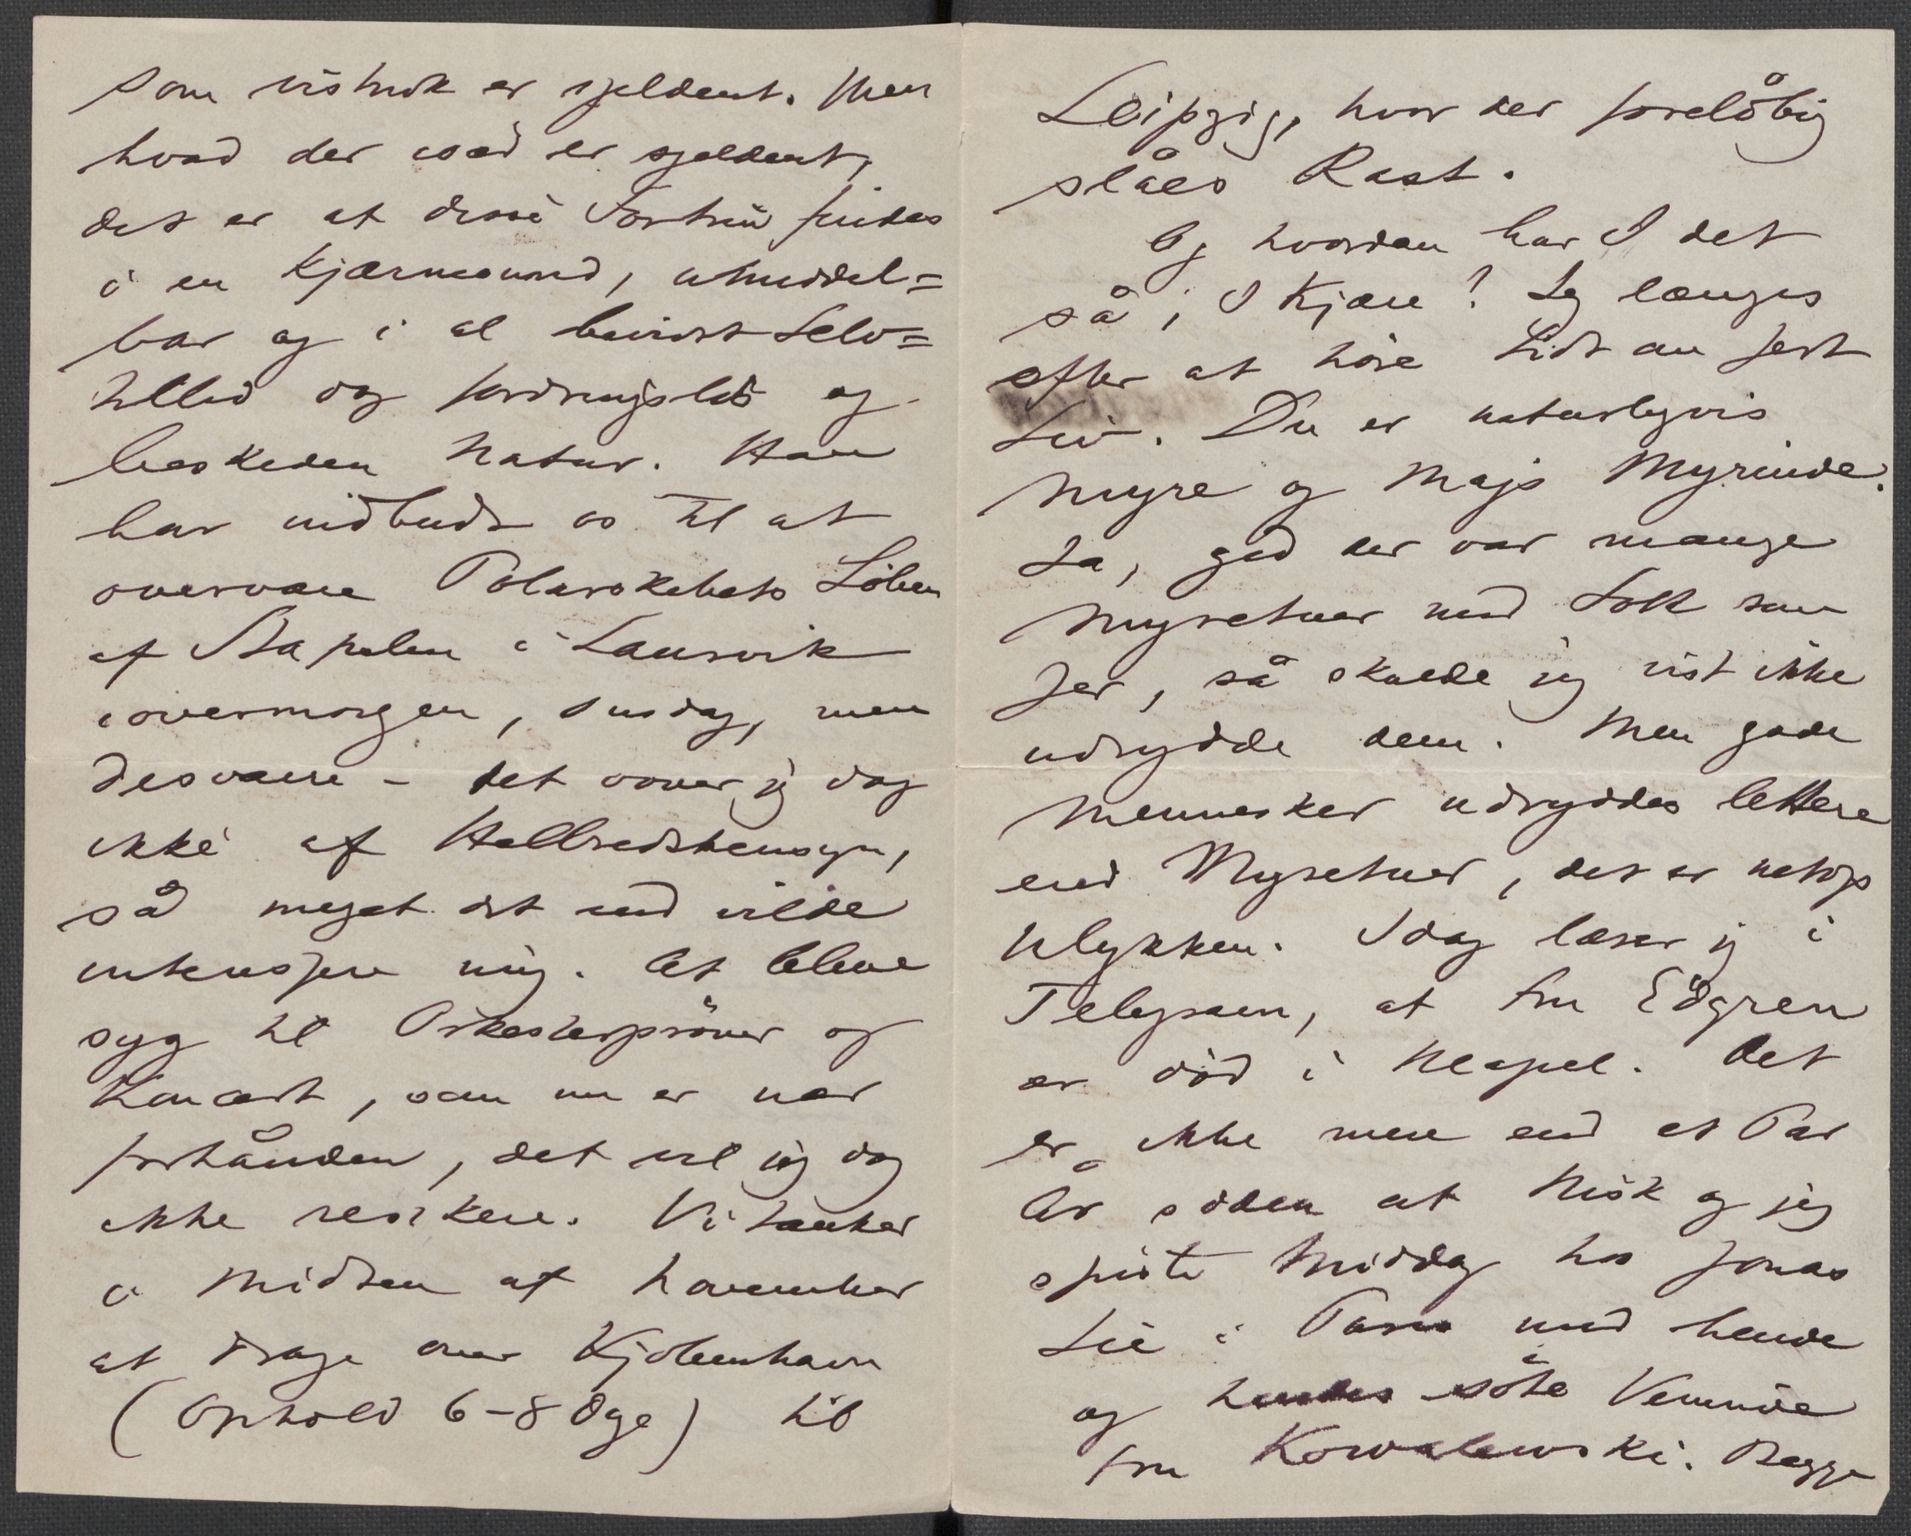 som vistnok er sjeldent. Men
hvad der også er sjeldent,
det er at disse Fortrin findes
i en Kjærnesund, umiddel=
bar og i al bevidst Selv=
tillid dog fordringsløs og
beskeden Natur. Han
har indbudt os til at
overvære Polarskibets Löben
af Stapelen i Laurvik
iovermorgen, Onsdag, men
desværre – det vover jeg dog
ikke af Helbredshensyn,
så meget det end vilde
interessere mig. At blive
syg til Orkesterpröver og
Koncert, som nu er nær
forhånden, det vil jeg dog
ikke resikere. Vi tænker
i Midten af November
at drage over Kjöbenhavn
(Ophold 6–8 Dage) til
Leipzig, hvor der foreløbig
slåes Rast.
Og hvordan har I det
så, I Kjære? Jeg længes
efter at höre Lidt om Jert
Liv. Du er naturligvis
Myre og Majs Myrinde.
Ja, gid der var mange
Myretuer med Folk som
Jer, så skulde jeg vist ikke
udrydde dem. Men gode
Mennesker udryddes lettere
end Myretuer, det er netop
Ulykken. Idag læser jeg i
Telegram, at Fru Edgren
er död i Neapel. Det
er ikke mere end et Par
År siden at Nisk og jeg
spiste Middag hos Jonas
Lie i Paris med hende
og hendes söte Veninde
Fru Kowalewski. Begge